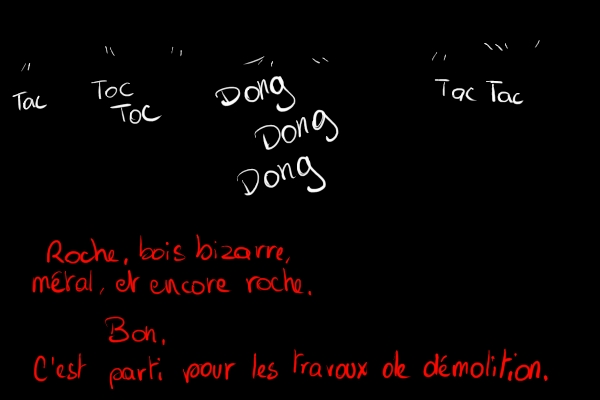 Tac
Toc
Toc
Dong
Dong
Dong
Tac Tac
Roche, bois bizarre,
métal, et encore roche.
Bon.
C'est parti pour les travaux de démolition.